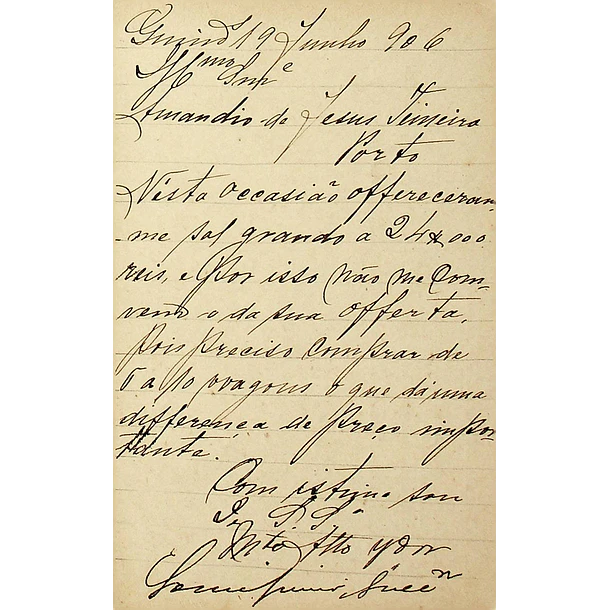 19 Junho 906
Illmo Snr
Amandio de Jesus Teixeira
Porto
Nésta occasião offereceram-
-me sal grando a 24$000
reis, e por isso não me com-
vem o da sua offerta,
pois preciso comprar de
8 a 10 vvagons o que dá uma
differença de preço impor-
tante.
Com istima sou
De S. Sª
Mto Atto